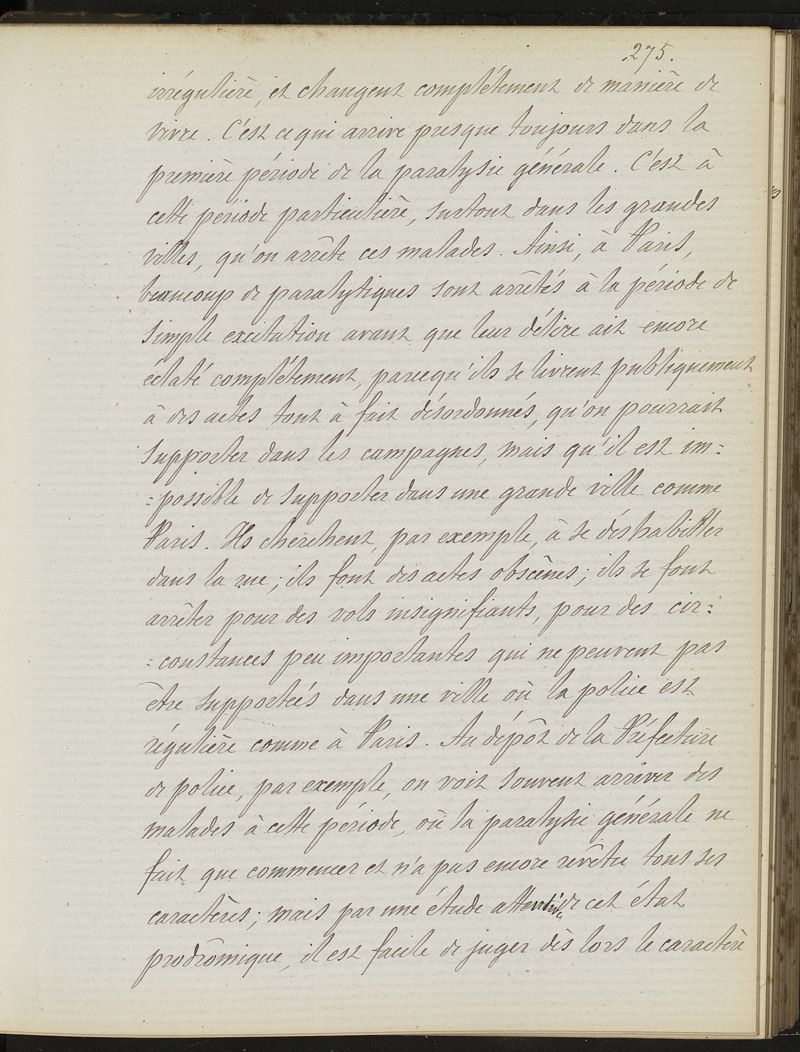 .275.
irrégulière, et changent complétement de manière de
vivre. C'est ce qui arrive presque toujours dans la
première période de la paralysie générale. C'est à
cette période particulière, surtout dans les grandes
villes, qu'on arrête ces malades. Ainsi, à Paris,
beaucoup de paralytiques sont arrêtés à la période de
simple excitation avant que leur délire ait encore
éclaté complétement, parcequ'ils se livrent publiquement
à des actes tout à fait désordonnés, qu'on pourrait
supporter dans les campagnes, mais qu'il est im=
=possible de supporter dans une grande ville comme
Paris. Ils cherchent, par exemple, à se déshabiller
dans la rue; ils font des actes obscènes; ils se font
arrêter pour des vols insignifiants, pour des cir=
=constances peu importantes qui ne peuvent pas
être supportées dans une ville où la police est
régulière comme à Paris. Au dépôt de la Préfecture
de police, par exemple, on voit souvent arriver des
malades à cette période, où la paralysie générale ne
fait que commencer et n'a pas encore revêtu tous ses
caractères; mais par une étude attentive de cet état
prodrômique, il est facile de juger dès lors le caractère